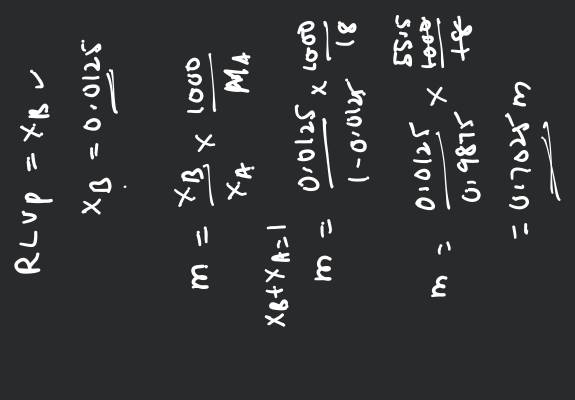 RLVP = XB ✓
XB = 0.0125
m = XB/XA × 1000/MA
XB+XA=1
m = 0.0125/1-0.0125 × 1000/18
m = 0.0125/0.9875 × 1000/18 5.555
= 0.7025 m